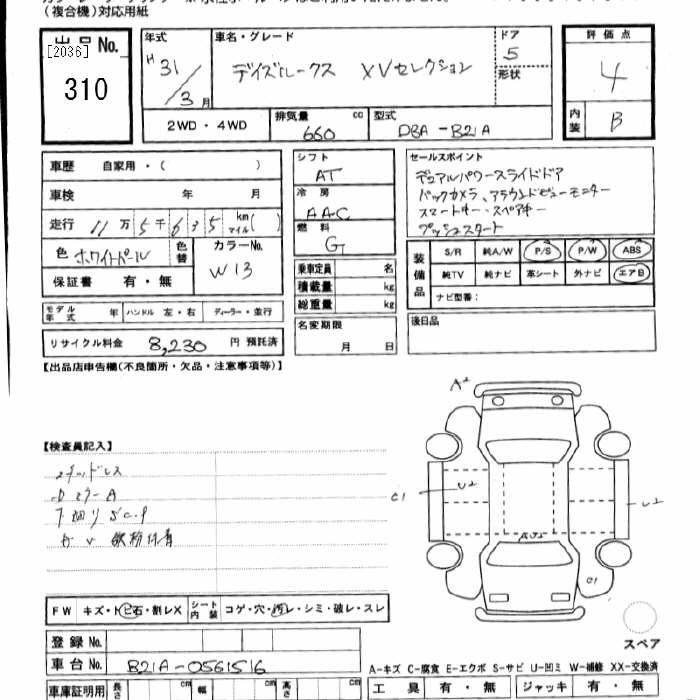 (複合機)対応用紙
出品No.
[2036]
310
年式
H 31/3月
車名・グレード
デイズルークス XVセレクション
ドア
5
形状
評価点
4
内装
B
2WD・4WD
排気量 cc
660
型式
DBA-B21A
車歴 自家用・( )
車検 年 月
走行 11万5千635 km マイル( )
色 ホワイトパール
色替
カラーNo.
W13
保証書 有・無
シフト
AT
冷房
AAC
燃料
G
乗車定員 名
積載量 kg
総重量 kg
セールスポイント
デュアルパワースライドドア
バックカメラ、アラウンドビューモニター
スマートキー・スペアキー
プッシュスタート
装備品
S/R 純A/W P/S P/W ABS
純TV 純ナビ 革シート 外ナビ エアB
ナビ型番:
モデル年式 年 ハンドル 左・右 ディーラー・並行
リサイクル料金 8,230 円 預託済
名変期限
月 日
後日品
【出品店申告欄(不良箇所・欠品・注意事項等)】
A2
【検査員記入】
スタッドレス
ミラーA
下廻りSC.P
鉄粉付着
C1
U2
U2
C1
FW キズ・ト ビ石・割レX
シート内装 コゲ・穴・汚レ・シミ・破レ・スレ
スペア
登録No.
車台No. B21A-0561516
A-キズ C-腐食 E-エクボ S-サビ U-凹ミ W-補修 XX-交換済
車庫証明用 長さ cm 幅 cm 高さ cm
工具 有・無 ジャッキ 有・無